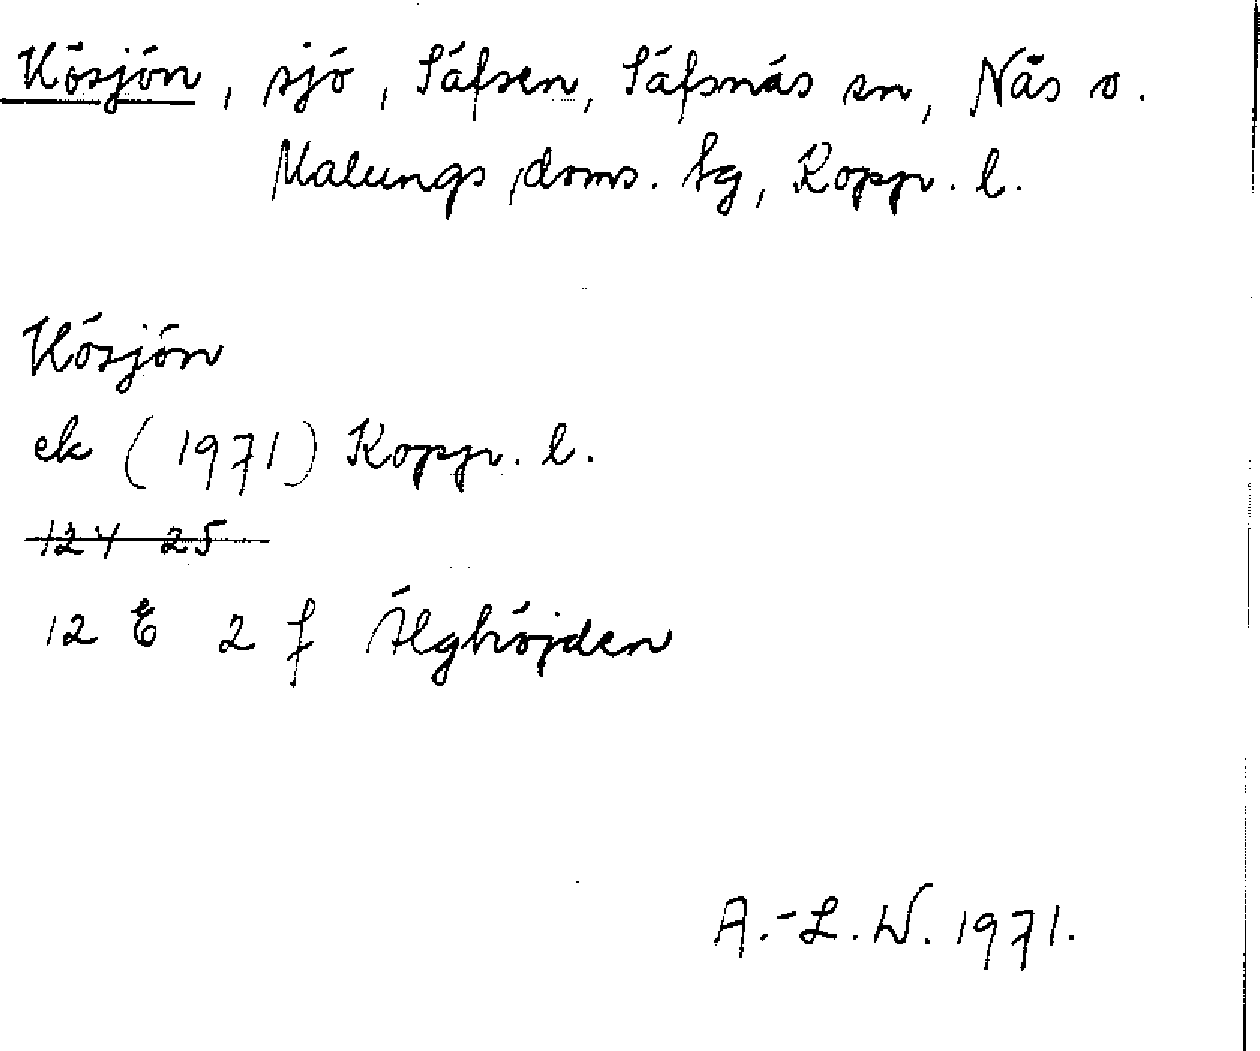 Kösjön, sjö, Säfsen, Säfsnäs sn, Näs o.
Malungs doms. tg, Kopp. l.
Kösjön
ek (1971) Kopp. l.
12 E 2 f Älghöjden
A.-L. W. 1971.